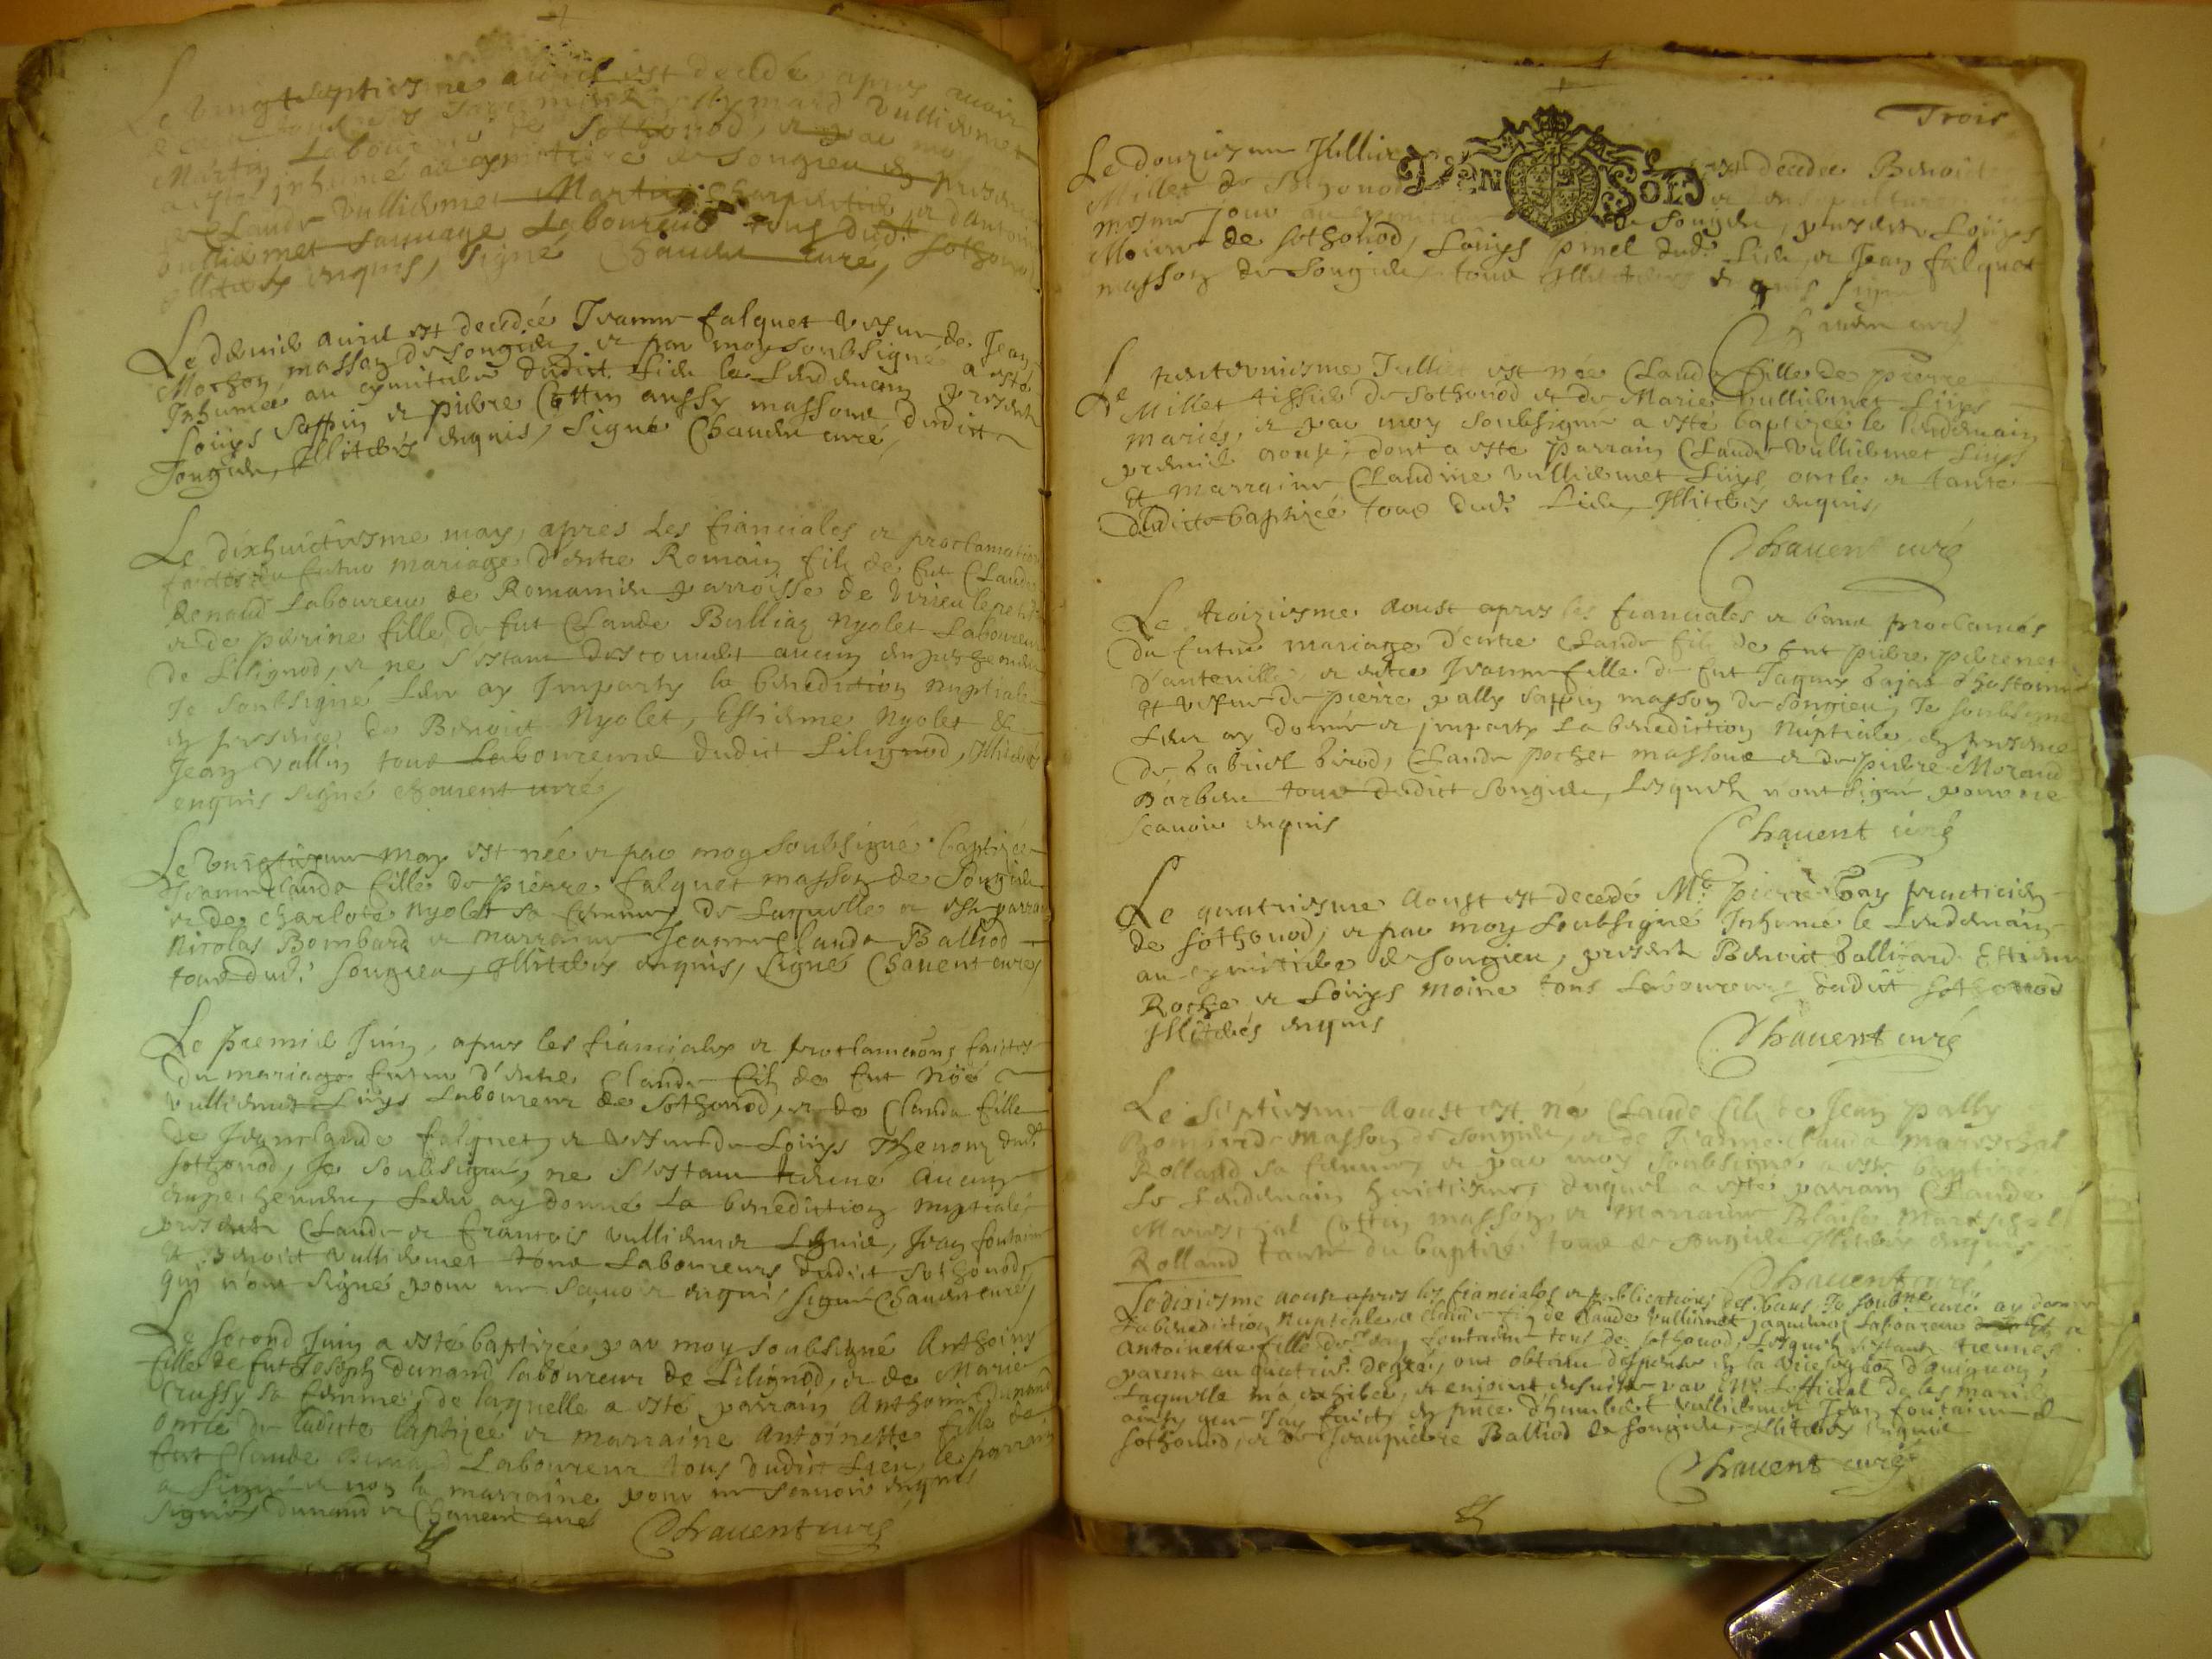 Le vingtseptiesme auril est decedé apres auoir
Vulliermet
Martin Laboureur de Sothonod, et par moy
a esté inhumé au cymitiere de Songieu en presence
de Claude Vulliermet Martin Charpentier et d'antoine
Vulliermet sauuage Laboureurs tous dudt Sothonod
illiterés enquis, Signé Chauent curé,
Le dernier auril est decedée Jeanne falquet vefue de Jean
Mochon masson de Songieu, et par moy soubsigné a esté
Inhumée au cymitiere dudict lieu le lendemain presents
Loüys Sappin et pierre Cottin aussy massons dudict
Songieu, Illiterés enquis, Signé Chauent curé,
Le dixhuictiesme may, apres les fianciales et proclamations
faictes du futur mariage d'entre Romain filz de fut Claude
Renaud Laboureur de Romanieu parroisse de Virieu le petit
et de perrine fille de fut Claude Bulliaz Nyolet Laboureur
de Lilignod, et ne s'estant descouuert aucun empeschement
Je soubsigné leur ay Imparty la benediction nuptiale
en presence de Benoict Nyolet, Estienne Nyolet et
Jean Vallin tous Laboureurs dudict Lilignod, Illiterés
enquis signé chauent curé,
Le vingtiesme may est née et par moy soubsigné baptizée
Jeanneclauda fille de pierre falquet masson de Songieu
et de charlote Nyolet sa femme, de laquelle a esté parrain
Nicolas Bombard et marraine Jeanneclauda Balliod
tous dudt Songieu, Illiterés enquis, Signé Chauent curé,
Le premier Juin, apres les fianciales et proclamaõns faictes
du mariage futur d'entre Claude filz de fut Noë
Vulliermet Liüys Laboureur de Sothonod, et de Clauda fille
de Jeanclaude falquet, et vefue de Loüys Thenon dudt
Sothonod, Je soubsigné, ne s'estant treuué aucun
empeschement, leur ay donné la benediction nuptiale
presents Claude et françois Vulliermet Jean fontaine
et Benoict Vulliermet tous Laboureurs dudict Sothonod,
qui n'ont signé pour ne scauoir enquis signé Chauent curé,
Le second Juin a esté baptizée par moy soubsigné Anthoine
fille de fut Joseph Dunand laboureur de Lilignod, et de Marie
Crussy sa femme, de laquelle a esté parrain Anthoine Dunand
oncle de ladicte baptizée et marraine Antoinette fille de
fut Claude Laboureur tous dudict Lieu, le parrain
a signé et non la marraine pour ne scauoir enquis
signés Dunand et Chauent curé Chauent curé
Trois
DEN SOLS
Le douziesme Juillet est decedée Benoict
Millet de Sothonod
mesme jour au cymitiere de Songieu, presents Loüys
Moine de Sothonod, Loüys pinel dudt Lieu, et Jean falquet
masson de Songieu, tous Illiterés enquis signé
Chauent curé
Le trenteuniesme Juillet est née Clauda fille de pierre
Millet tissier de Sothonod et de Marie Vulliermet Liüys
mariés, et par moy soubsigné a esté baptizée le lendemain
premier aoust, dont a esté parrain Claude Vulliermet Liüys
et marraine Claudine Vulliermet Liüys, oncle et tante
de ladicte baptizée tous dudt Lieu, Illiterés enquis,
Chauent curé
Le troiziesme Aoust apres les fianciales et bans proclamés
du futur mariage d'entre Claude filz de fut pierre
et entre Jeanne fille de fut Jaques
et vefue de pierre pally Sappin masson de Songieu, Je soubsigné
leur ay donné et imparty la benediction Nuptiale en presence
de Gabriel Girod, Claude pochet massons et de pierre Morand
Barbier tous dudict Songieu, lesquels n'ont signé pour ne
scauoir enquis
Chauent curé
Le quatriesme Aoust est decedé Me pierre Gay practicien
de Sothonod, et par moy soubsigné Inhumé le lendemain
au cymitiere de Songieu, presents Benoict Estienne
Roche, et Loüys Moine tous Laboureurs dudict Sothonod
Illiterés enquis
Chauent curé
Le septiesme Aoust est né Claude filz de Jean pally
masson de Songieu, et de Jeanneclauda mareschal
Rolland sa femme, et par moy soubsigné a esté baptizé
le lendemain huictiesme, duquel a esté parrain Claude
Mareschal Cottin masson et marraine Blaise Mareschal
Rolland tante du baptizé tous de Songieu Illiterés enquis
Chauent curé,
Le dixiesme aoust apres les fianciales et publications des bans Je soubsné curé ay donné
la benediction Nuptiale a Claude filz de Claude Vulliermet Jaquemet Laboureur et
Antoinette fille de Jean fontaine tous de Sothonod, lesquels s'estants treuués
parent au quatrie. degré, ont obtenu dispense de la d'auignon,
laquelle m'a exhibée, et enjoint ensuitte par Mr L'official de les marier
ainsy que J'ay faict, en pnce d'humbert Vulliermet Jean fontaine de
Sothonod, et de Jeanpierre Balliod de Songieu, Illiterés enquis
Chauent curé